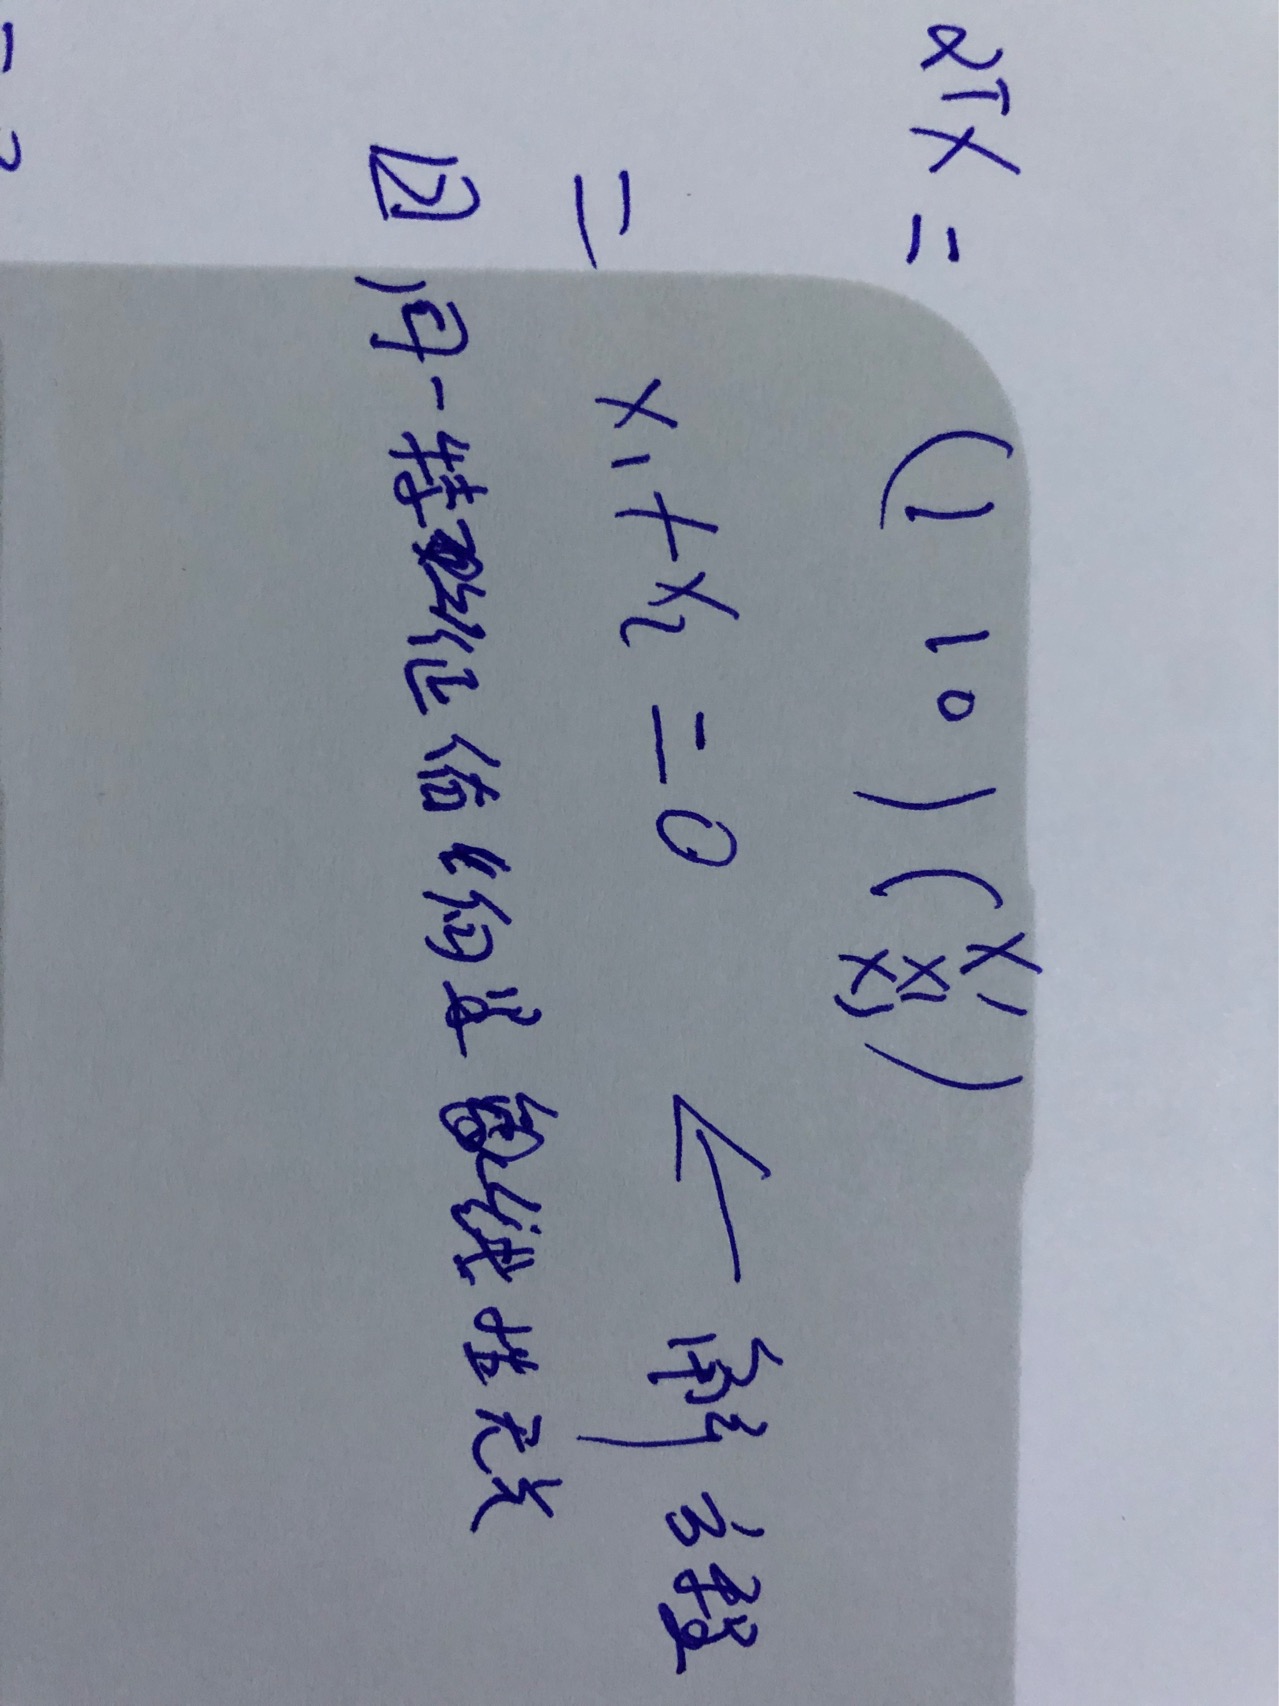 α^T X = (1 1 0) (x₁ x₂ x₃)
= x₁ + x₂ = 0 ← 解方程
四 同一特征值的 线性无关